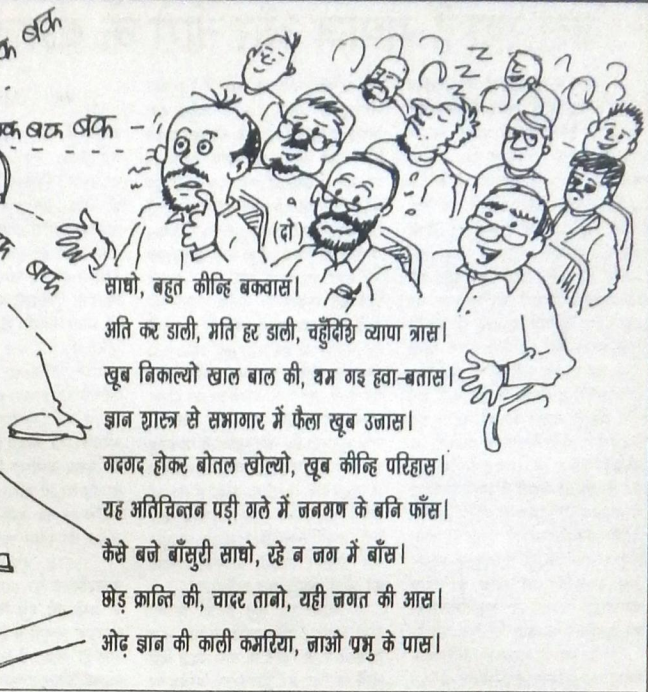 क बक
क बक बक
क बक
(दो)
साधो, बहुत कीन्हि बकवास।
अति कर डाली, मति हर डाली, चहुँदिशि व्यापा त्रास।
खूब निकाल्यो खाल बाल की, थम गइ हवा-बतास।
ज्ञान शास्त्र से सभागार में फैला खूब उजास।
गदगद होकर बोतल खोल्यो, खूब कीन्हि परिहास।
यह अतिचिन्तन पड़ी गले में जनगण के बनि फाँस।
कैसे बजे बाँसुरी साधो, रहे न जग में बाँस।
छोड़ क्रान्ति की, चादर तानो, यही जगत की आस।
ओढ़ ज्ञान की काली कमरिया, जाओ प्रभु के पास।